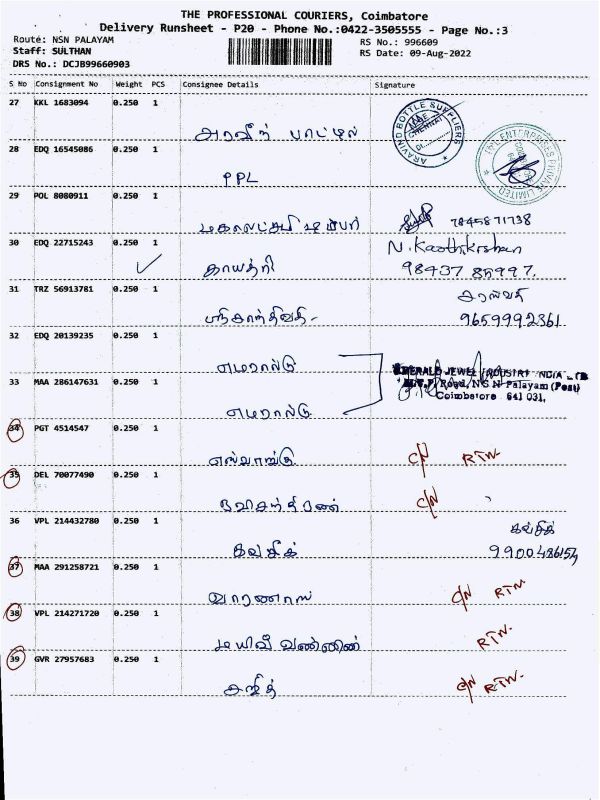 THE PROFESSIONAL COURIERS, Coimbatore
Delivery Runsheet - P20 - Phone No.:0422-3505555 - Page No.:3
Route: NSN PALAYAM
RS No.: 996609
Staff: SULTHAN
RS Date: 09-Aug-2022
DRS No.: DCJB99660903
S No Consignment No Weight PCS Consignee Details Signature
27 KKL 1683094 0.250 1
அரவிந் பாட்டில் ARAVIND BOTTLE SUPPLIERS
28 EDQ 16545086 0.250 1
PPL ENTERPRISES PRIVATE LIMITED
29 POL 8080911 0.250 1
மகாலட்சுமி டிம்பர் 7845871738
30 EDQ 22715243 0.250 1 N. Kaathikeshan
காயத்ரி 98437 85997.
31 TRZ 56913781 0.250 1 சரஸ்வதி
9659992361
32 EDQ 20139235 0.250 1
எமரால்டு EMERALD JEWEL INDUSTRY INDIA
33 MAA 286147631 0.250 1 Road, N S N Palayam (Post)
எமரால்டு Coimbatore 641 031.
34 PGT 4514547 0.250 1
C/N RTN.
35 DEL 70077490 0.250 1
ரவிசந்திரன் C/N
36 VPL 214432780 0.250 1 கவ்சிக்
கவ்சிக் 9900486154
37 MAA 291258721 0.250 1
வாரணாஸ் C/N RTN.
38 VPL 214271720 0.250 1
RTN.
39 GVR 27957683 0.250 1
C/N RTN.